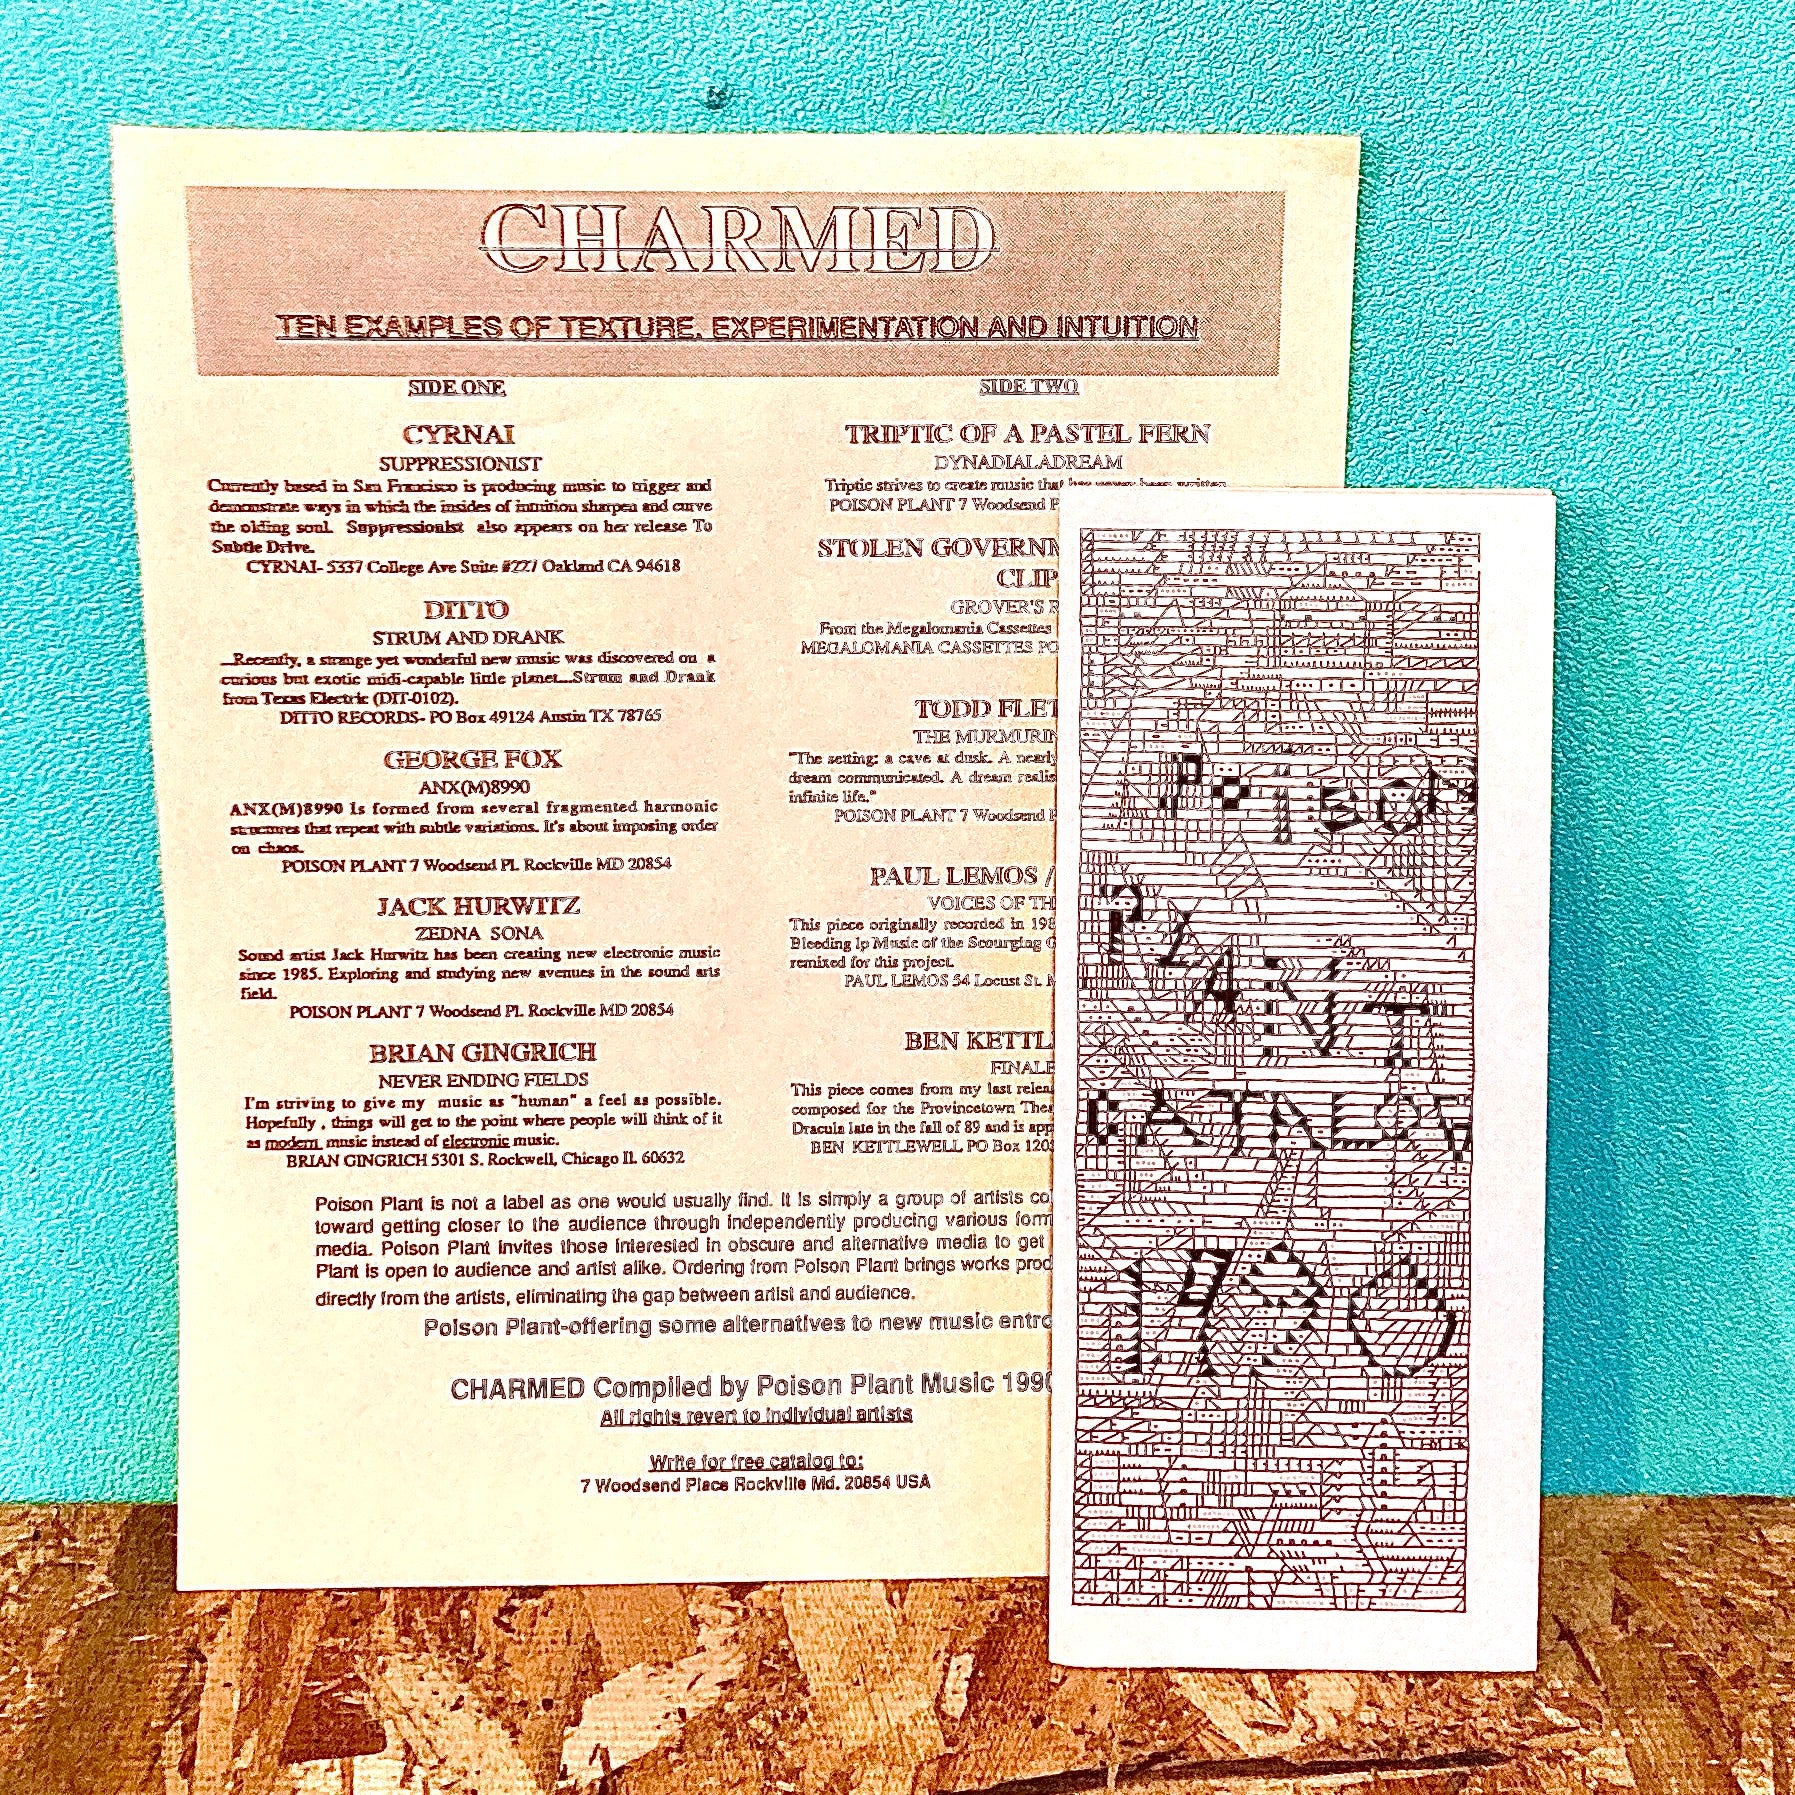 CHARMED
TEN EXAMPLES OF TEXTURE, EXPERIMENTATION AND INTUITION
SIDE ONE
CYRNAI
SUPPRESSIONIST
Currently based in San Francisco is producing music to trigger and
demonstrate ways in which the insides of intuition sharpen and curve
the olding soul. Suppressionist also appears on her release To
Subtle Drive.
CYRNAI- 5337 College Ave Suite #227 Oakland CA 94618
DITTO
STRUM AND DRANK
...Recently, a strange yet wonderful new music was discovered on a
curious but exotic midi-capable little planet...Strum and Drank
from Texas Electric (DIT-0102).
DITTO RECORDS- PO Box 49124 Austin TX 78765
GEORGE FOX
ANX(M)8990
ANX(M)8990 is formed from several fragmented harmonic
structures that repeat with subtle variations. It's about imposing order
on chaos.
POISON PLANT 7 Woodsend Pl. Rockville MD 20854
JACK HURWITZ
ZEDNA SONA
Sound artist Jack Hurwitz has been creating new electronic music
since 1985. Exploring and studying new avenues in the sound arts
field.
POISON PLANT 7 Woodsend Pl. Rockville MD 20854
BRIAN GINGRICH
NEVER ENDING FIELDS
I'm striving to give my music as "human" a feel as possible.
Hopefully , things will get to the point where people will think of it
as modern music instead of electronic music.
BRIAN GINGRICH 5301 S. Rockwell, Chicago IL 60632
SIDE TWO
TRIPTIC OF A PASTEL FERN
DYNADIALADREAM
Triptic strives to create music that has never been written
POISON PLANT 7 Woodsend P
STOLEN GOVERNM
CLIP
GROVER'S R
From the Megalomania Cassettes
MEGALOMANIA CASSETTES PO
TODD FLET
THE MURMURIN
"The setting: a cave at dusk. A nearly
dream communicated. A dream realis
infinite life."
POISON PLANT 7 Woodsend P
PAUL LEMOS /
VOICES OF TH
This piece originally recorded in 198
Bleeding lp Music of the Scourging G
remixed for this project.
PAUL LEMOS 54 Locust St. M
BEN KETTL
FINALE
This piece comes from my last relea
composed for the Provincetown Thea
Dracula late in the fall of 89 and is app
BEN KETTLEWELL PO Box 120
Poison Plant is not a label as one would usually find. It is simply a group of artists co
toward getting closer to the audience through independently producing various form
media. Poison Plant invites those interested in obscure and alternative media to get
Plant is open to audience and artist alike. Ordering from Poison Plant brings works prod
directly from the artists, eliminating the gap between artist and audience.
Poison Plant-offering some alternatives to new music entro
CHARMED Compiled by Poison Plant Music 1990
All rights revert to individual artists
Write for free catalog to:
7 Woodsend Place Rockville Md. 20854 USA
POISON
PLANT
CATALOG
1980